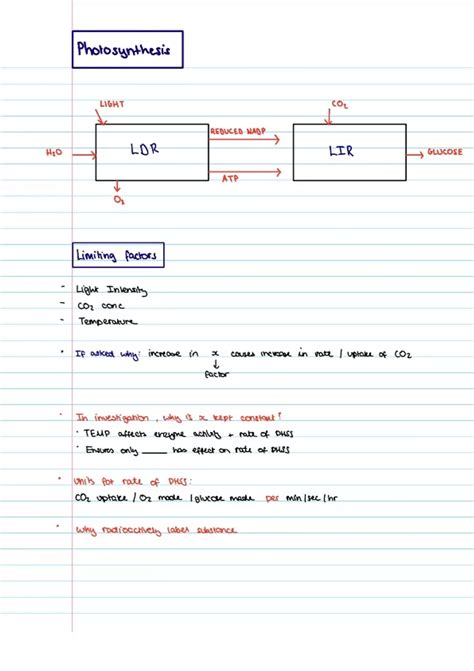 Photosynthesis
LIGHT
CO2
REDUCED NADP
H2O
LDR
LIR
GLUCOSE
ATP
O2
Limiting factors
- Light Intensity
- CO2 conc
- Temperature
• If asked why: increase in x causes increase in rate / uptake of CO2
↓
factor
• In investigation, why is x kept constant?
• TEMP affects enzyme activity + rate of
• Ensures only ____ has effect on rate of
• Units for rate of
CO2 uptake / O2 made / glucose made per min/sec/hr
• Why radioactively label substance